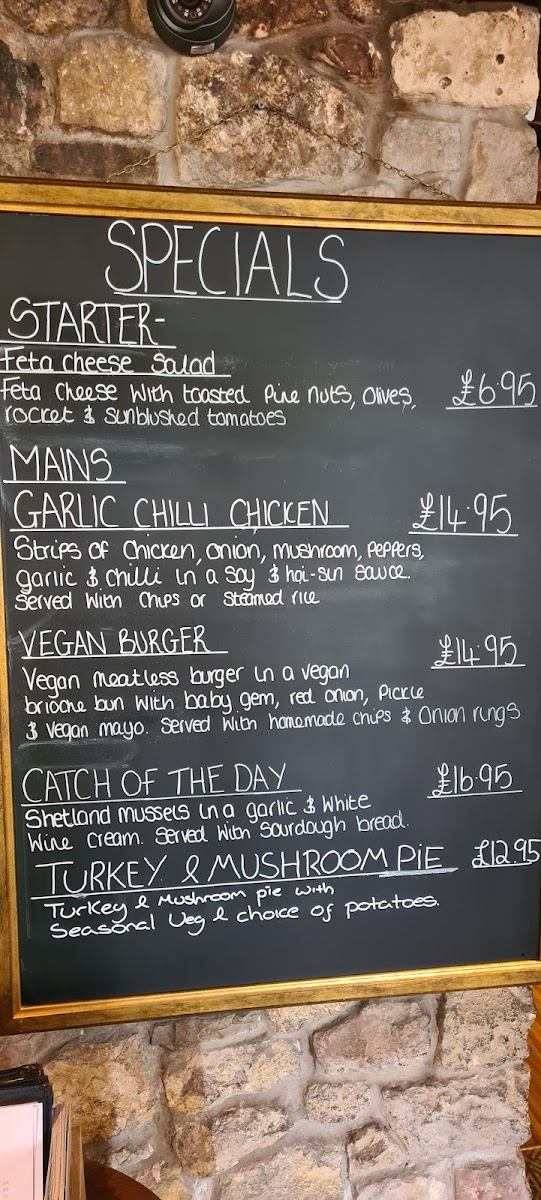 SPECIALS
STARTER-
Feta cheese Salad
Feta Cheese With toasted Pine nuts, Olives, £6.95
rocket & Sunblushed tomatoes
MAINS
GARLIC CHILLI CHICKEN £14.95
Strips of Chicken, onion, mushroom, Peppers,
garlic & chilli in a Soy & hoi-sun Sauce.
Served With Chips or Steamed rice
VEGAN BURGER £14.95
Vegan meatless burger in a vegan
brioche bun With baby gem, red onion, Pickle
& Vegan mayo. Served With homemade chips & Onion rings
CATCH OF THE DAY £16.95
Shetland mussels in a garlic & White
Wine Cream. Served With Sourdough bread.
TURKEY & MUSHROOM PiE £12.95
Turkey & Mushroom pie with
Seasonal Veg & choice of potatoes.